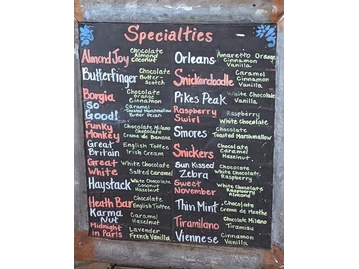 Specialties
Almond Joy Chocolate Almond Coconut
Butterfinger Chocolate Butter Scotch
Borgia Chocolate Orange Cinnamon
So Good! Caramel Toasted Marshmallow Butter Pecan
Funky Monkey Chocolate Milano Chocolate Creme de Banana
Great Britain English Toffee Irish Cream
Great White White Chocolate Salted Caramel
Haystack White Chocolate Coconut Hazelnut
Heath Bar Chocolate English Toffee
Karma Nut Caramel Hazelnut
Midnight in Paris Lavender French Vanilla
Orleans Amaretto Orange Cinnamon Vanilla
Snickerdoodle Caramel Cinnamon Vanilla
Pikes Peak White Chocolate Vanilla
Raspberry Swirl Raspberry White Chocolate
S'mores Chocolate Toasted Marshmallow
Snickers Chocolate Caramel Hazelnut
Sun Kissed Zebra White Chocolate Chocolate, Raspberry
Sweet November White Chocolate Raspberry Almond
Thin Mint Chocolate Creme de Menthe
Tiramilano Chocolate Milano Tiramisu
Viennese Cinnamon Vanilla